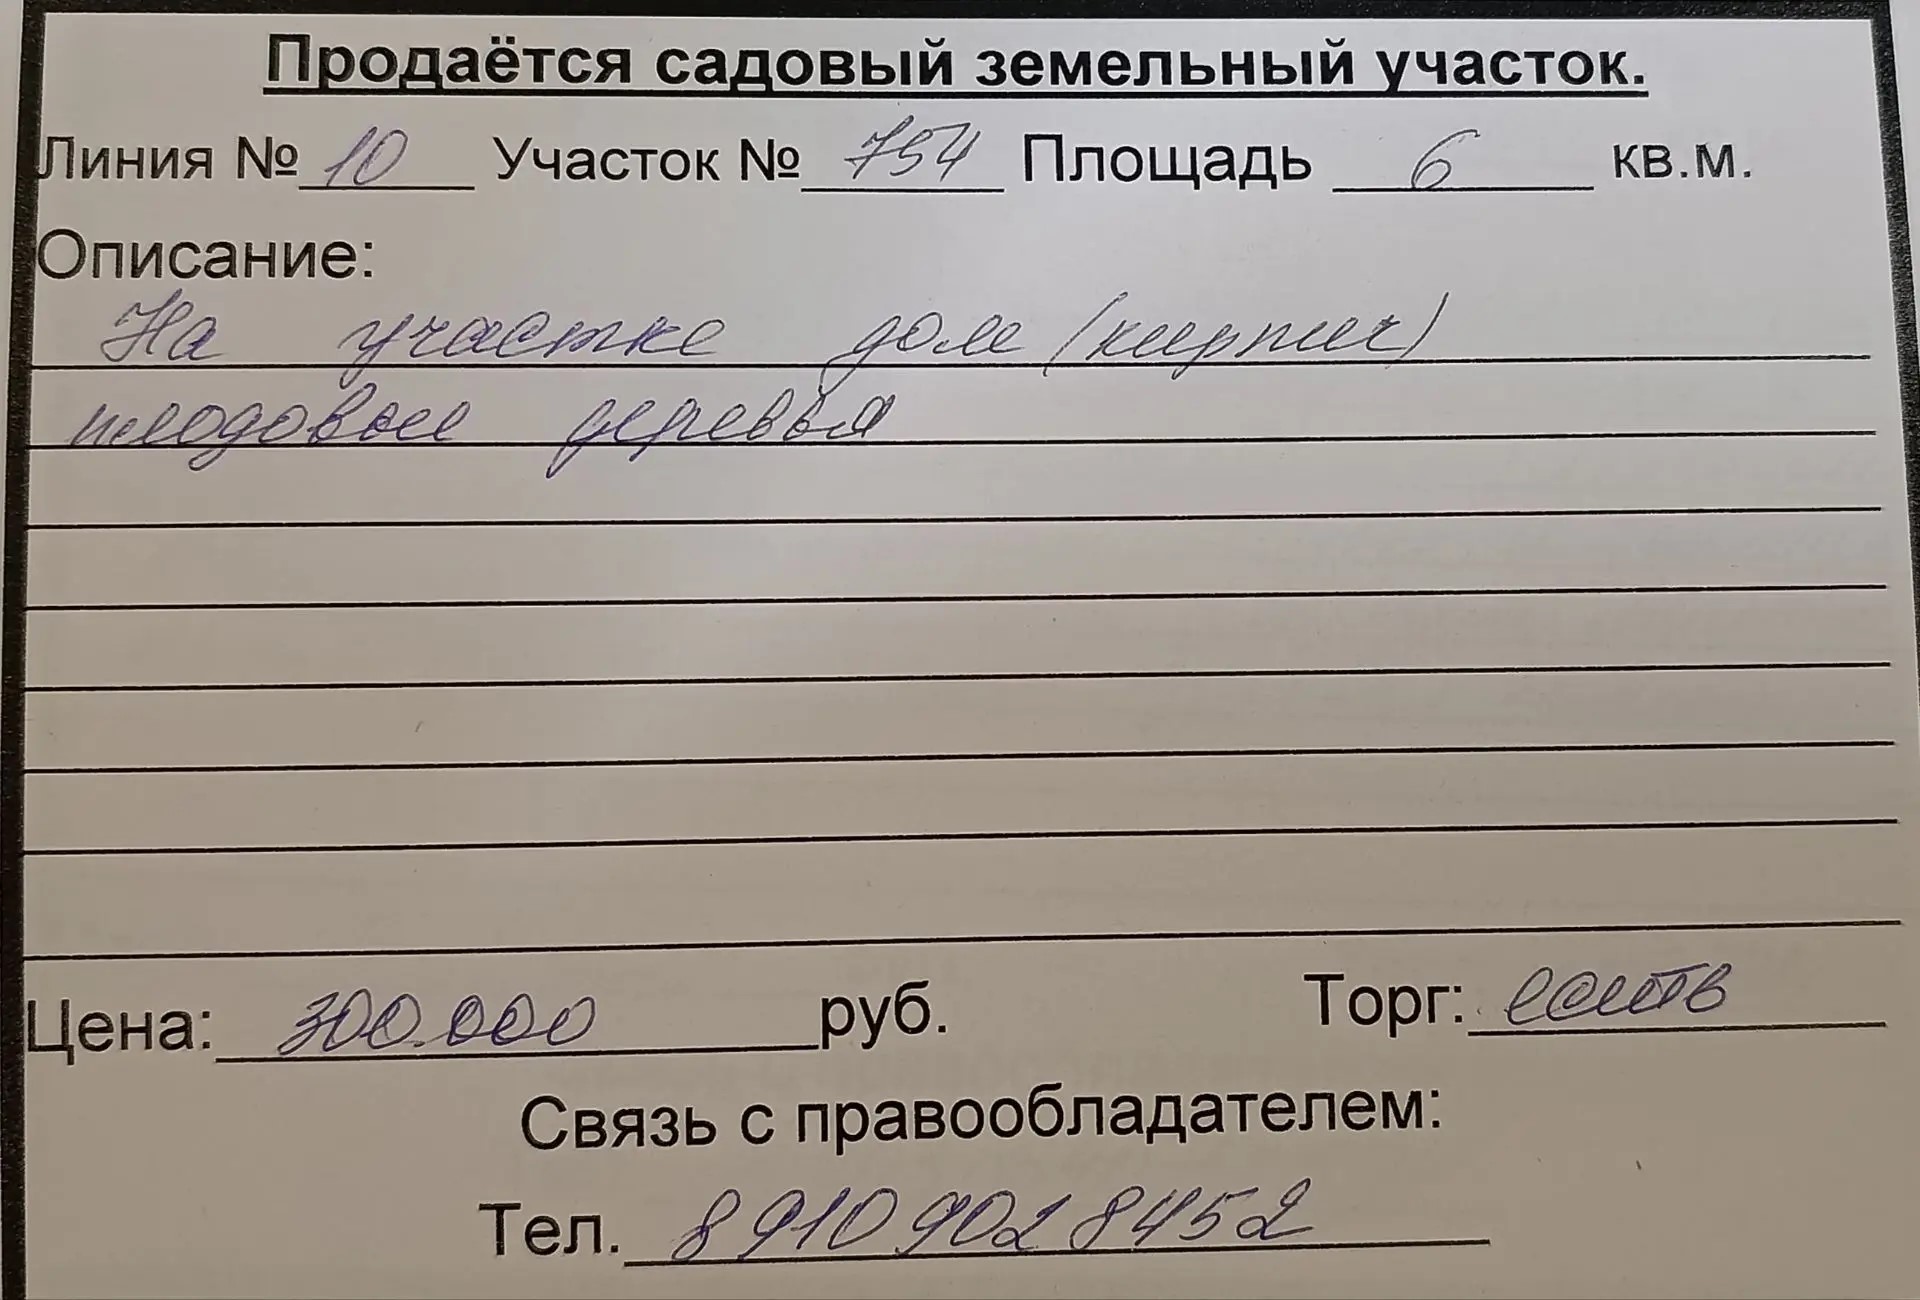 Продаётся садовый земельный участок.
Линия № 10 Участок № 754 Площадь 6 кв.м.
Описание:
На участке дом (кирпич)
плодовые деревья
Цена: 300.000 руб. Торг: есть
Связь с правообладателем:
Тел. 8 910 902 8452